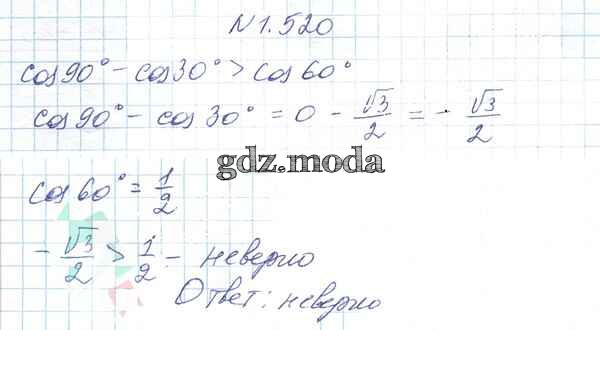 N 1.520
cos 90° - cos 30° > cos 60°
cos 90° - cos 30° = 0 - √3/2 = - √3/2
gdz.moda
cos 60° = 1/2
- √3/2 > 1/2 - неверно
Ответ: неверно